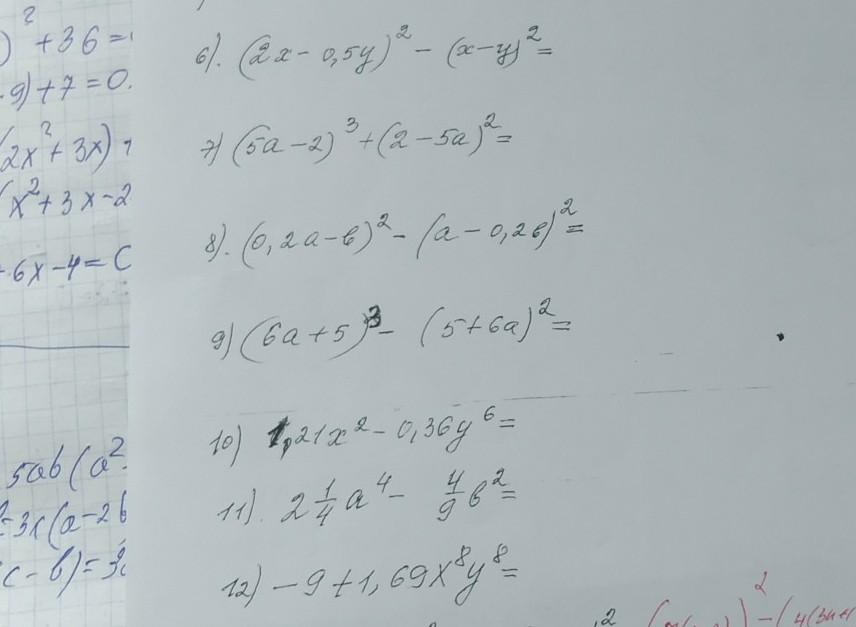 )² + 36 =
9) + 7 = 0.
(2x² + 3x)
(x² + 3x - 2
6x - 4 =
5ab (a²
= 3x(a - 2b
c - b) =
6). (2x - 0,5y)² - (x - y)² =
7) (5a - 2)³ + (2 - 5a)² =
8). (0,2a - b)² - (a - 0,2b)² =
9) (6a + 5)³ - (5 + 6a)² =
10) 1,21x² - 0,36y⁶ =
11). 2 1/4 a⁴ - 4/9 b² =
12) - 9 + 1,69x⁸y⁸ =